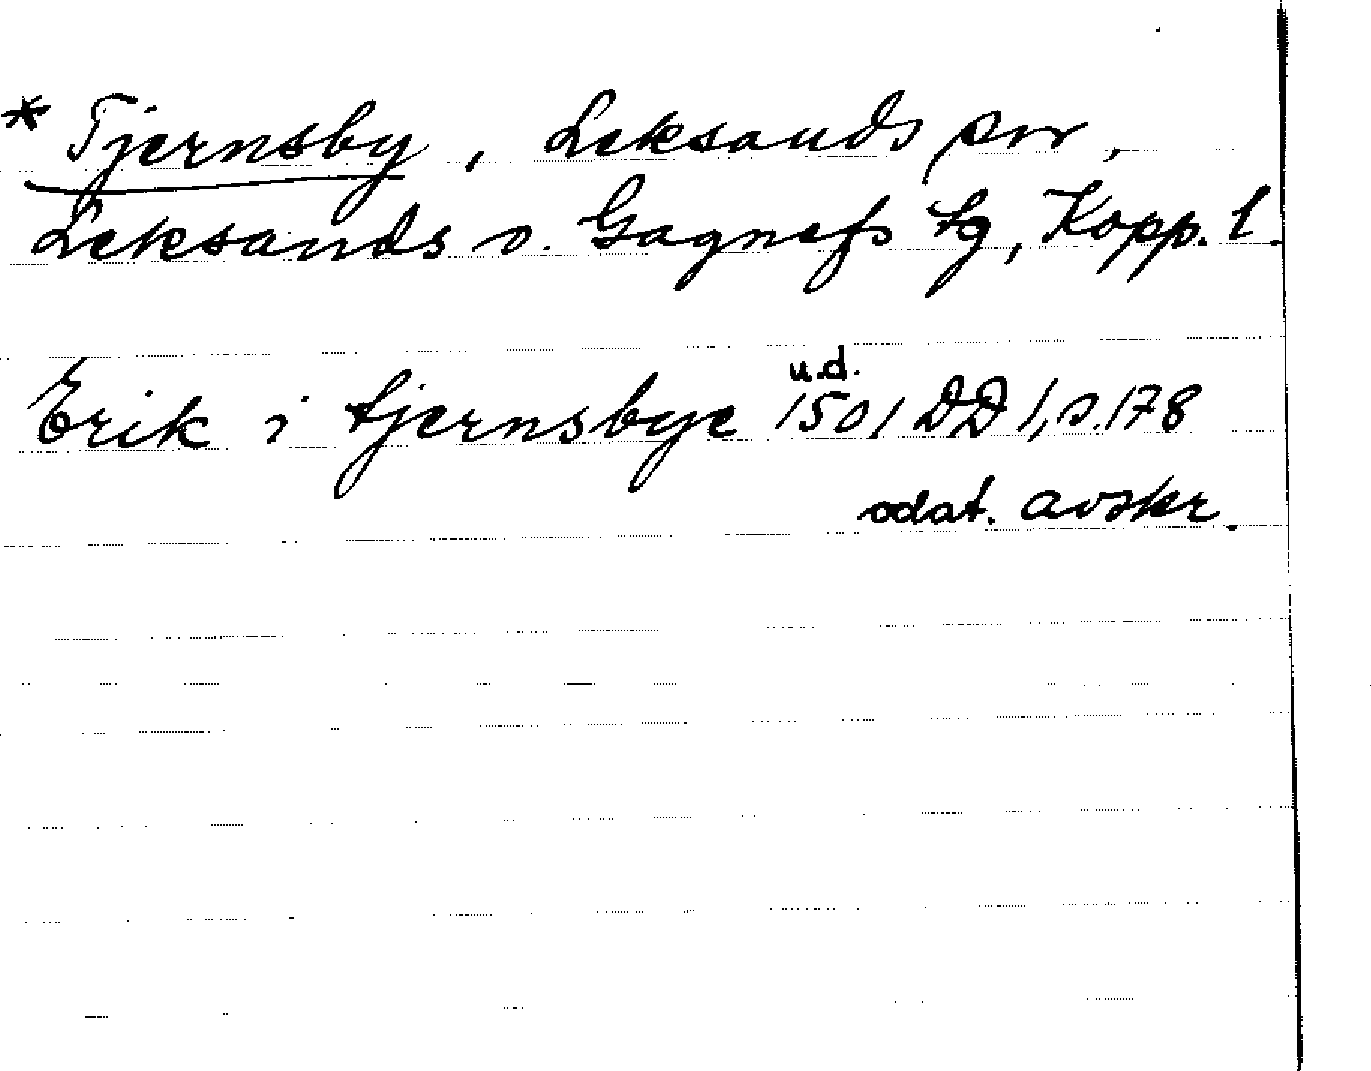 * Tjernsby, Leksands sn,
Leksands o. Gagnefs tg, Kopp. l.
Erik i tjernsbye u.d. 1501 DD 1, s. 178
odat. avskr.